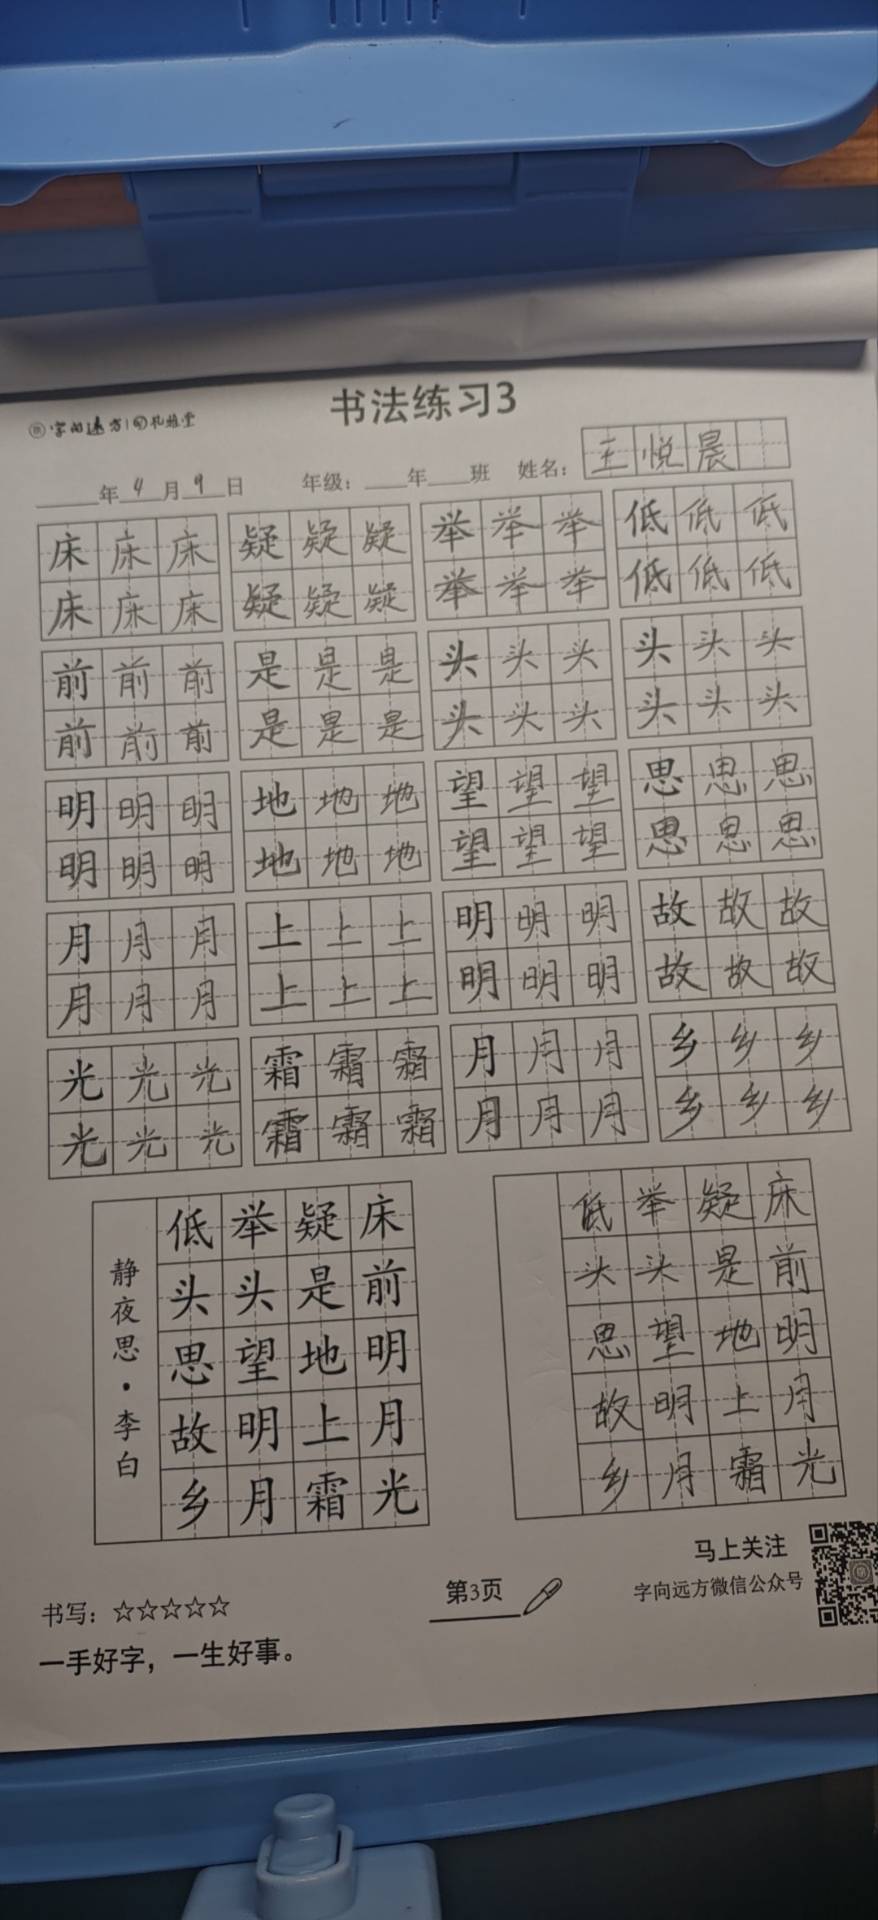 字向远方
书法练习3
年4月9日 年级: 年 班 姓名: 王悦晨
床床床 疑疑疑 举举举 低低低
床床床 疑疑疑 举举举 低低低
前前前 是是是 头头头 头头头
前前前 是是是 头头头 头头头
明明明 地地地 望望望 思思思
明明明 地地地 望望望 思思思
月月月 上上上 明明明 故故故
月月月 上上上 明明明 故故故
光光光 霜霜霜 月月月 乡乡乡
光光光 霜霜霜 月月月 乡乡乡
床前明月光
疑是地上霜
举头望明月
低头思故乡
静夜思·李白
床前明月光
疑是地上霜
举头望明月
低头思故乡
书写: ☆☆☆☆☆
一手好字，一生好事。
第3页
马上关注
字向远方微信公众号